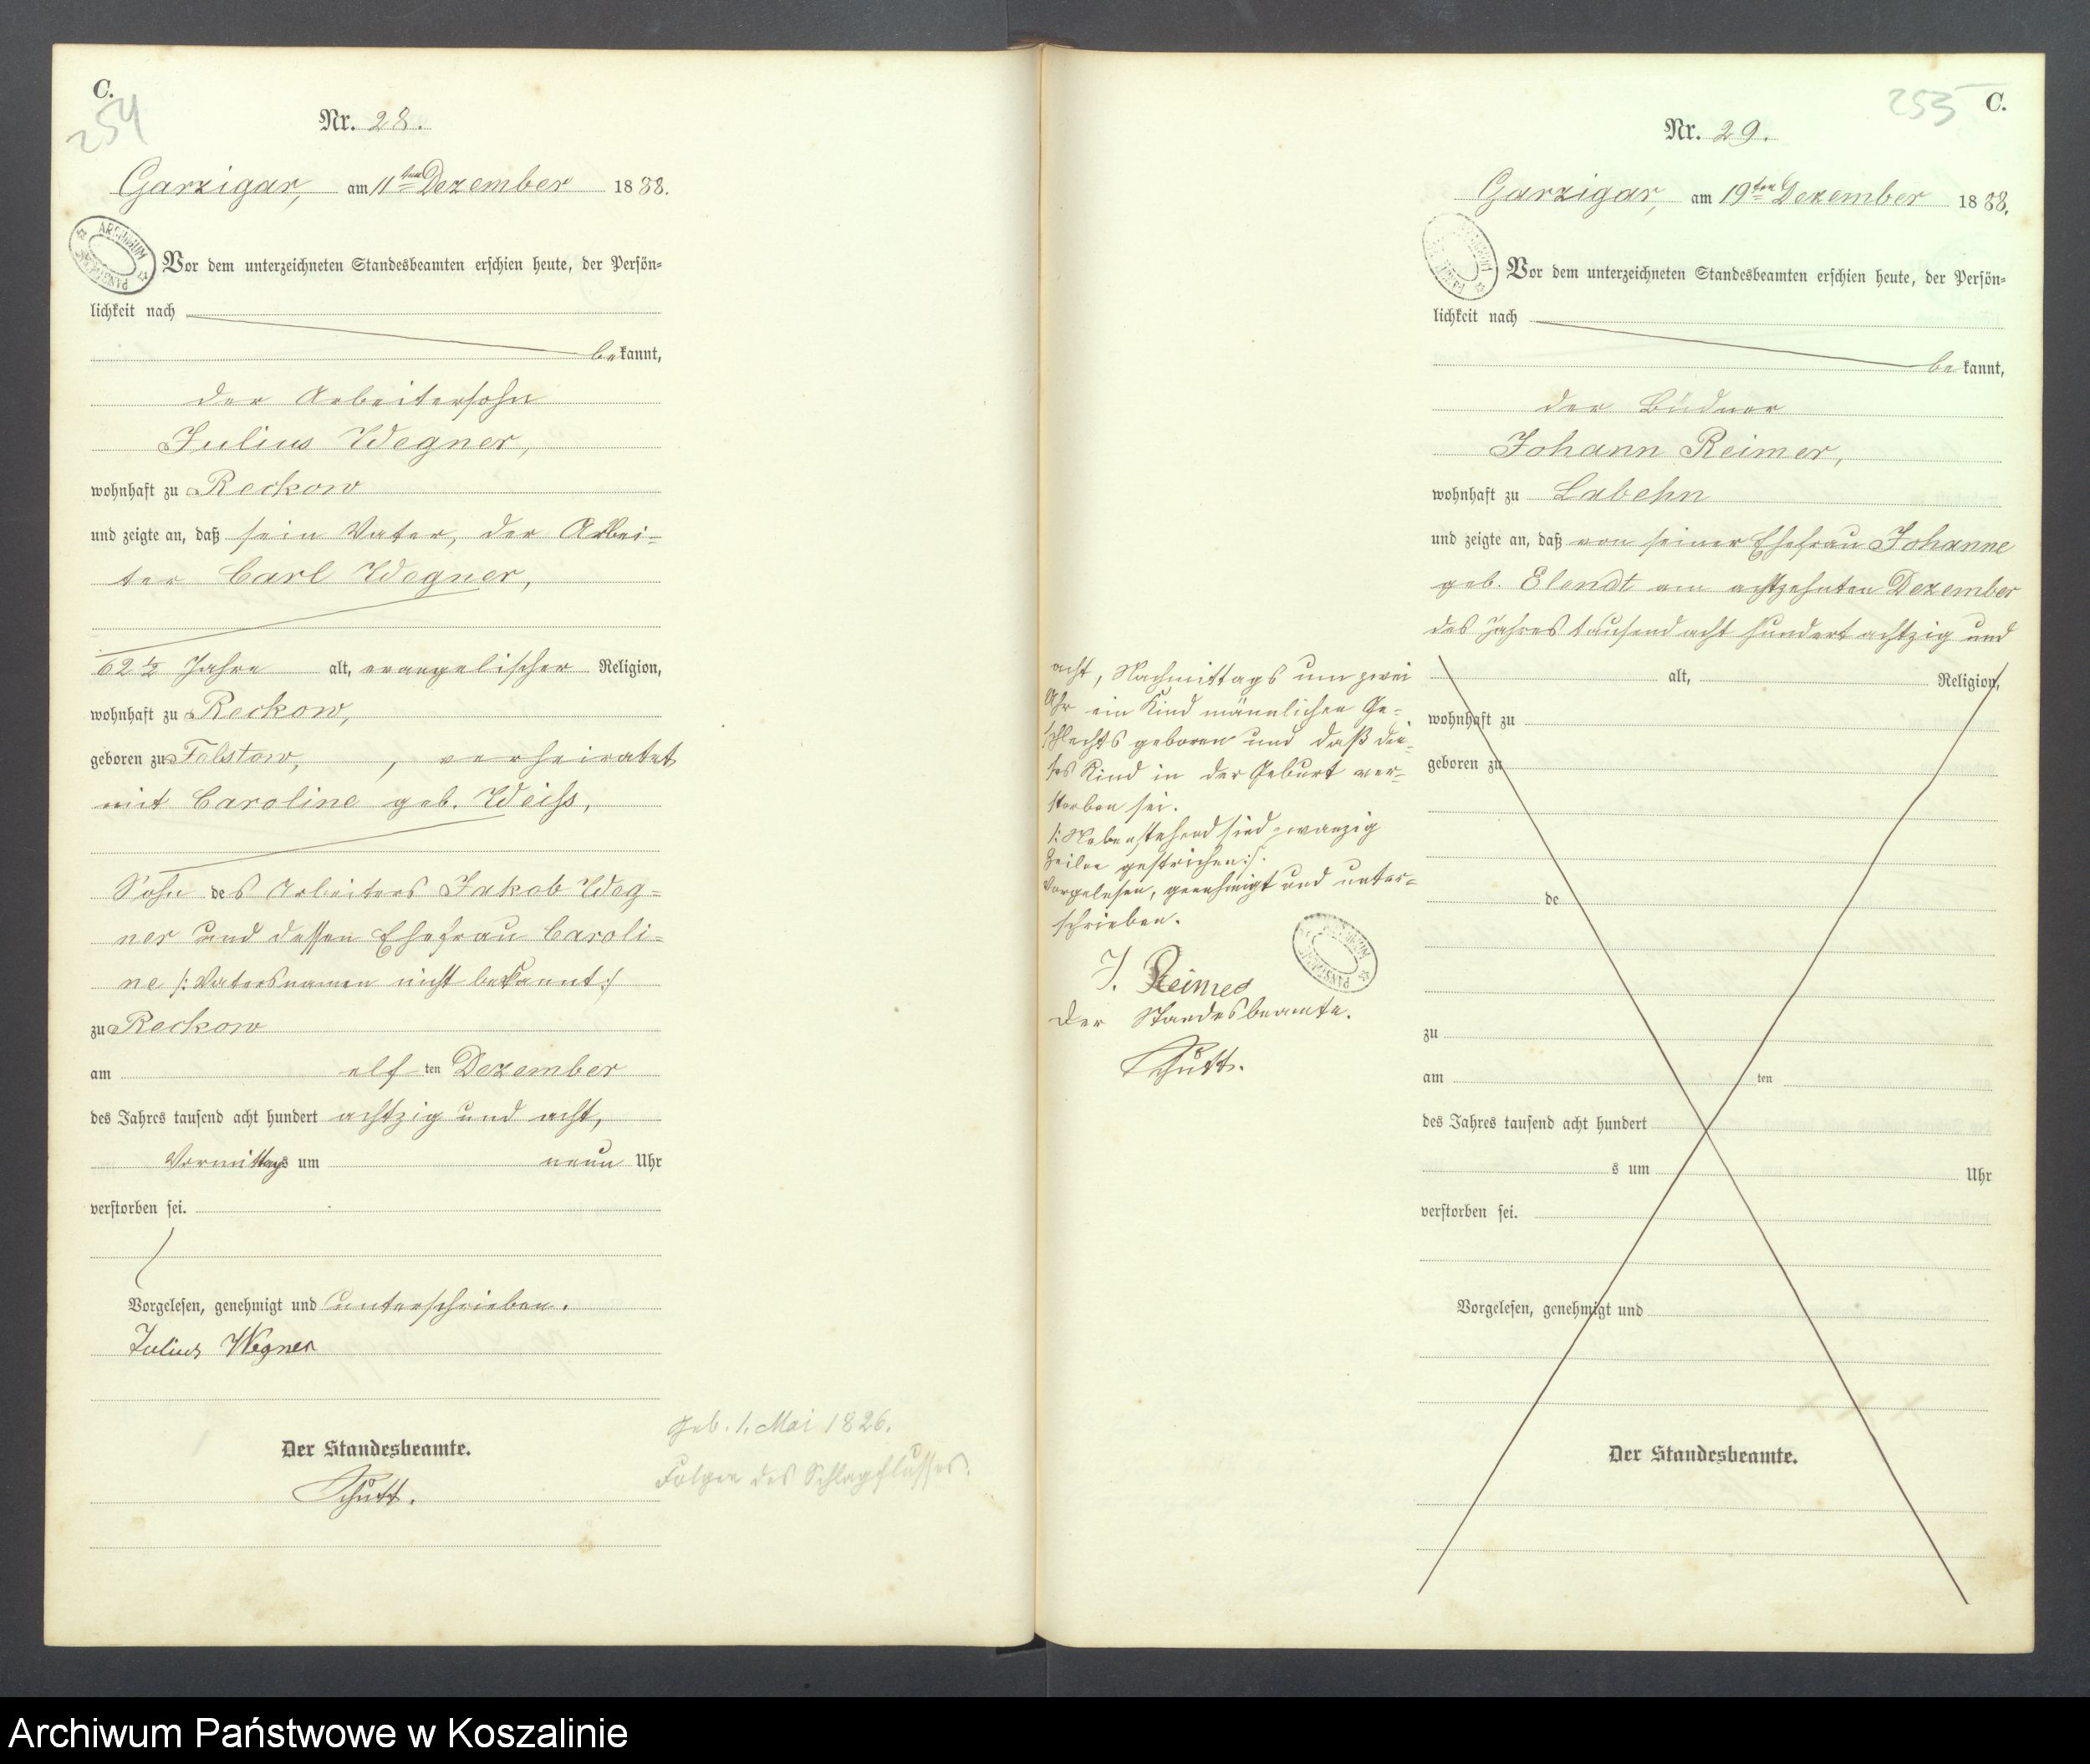 C.
254
Nr. 28.
Garzigar, am 11ten Dezember 1888.
ARCHIWUM PAŃSTWOWE
Vor dem unterzeichneten Standesbeamten erschien heute, der Persön=
lichkeit nach
bekannt,
der Arbeitersohn
Julius Wegner,
wohnhaft zu Reckow
und zeigte an, daß sein Vater, der Arbei=
ter Carl Wegner,
62 1/2 Jahre alt, evangelischer Religion,
wohnhaft zu Reckow,
geboren zu Felstow, , verheiratet
mit Caroline geb. Weiss,
Sohn des Arbeiters Jakob Weg=
ner und dessen Ehefrau Caroli=
ne /: Vatersnamen nicht bekannt :/
zu Reckow
am elf ten Dezember
des Jahres tausend acht hundert achtzig und acht,
Vormittags um neun Uhr
verstorben sei.
Vorgelesen, genehmigt und unterschrieben.
Julius Wegner
Der Standesbeamte.
Schütt.
geb. 1. Mai 1826.
Folgen des Schlagflusses.
255
C.
Nr. 29.
Garzigar, am 19ten Dezember 1888.
Vor dem unterzeichneten Standesbeamten erschien heute, der Persön=
lichkeit nach
bekannt,
der Büdner
Johann Reimer,
wohnhaft zu Labehn
und zeigte an, daß von seiner Ehefrau Johanne
geb. Elendt am achtzehnten Dezember
des Jahres tausend acht hundert achtzig und
acht, Nachmittags um zwei
Uhr ein Kind männlichen Ge=
schlechts geboren und daß die=
ses Kind in der Geburt ver=
storben sei.
/: Nebenstehend sind zwanzig
Zeilen gestrichen :/.
Vorgelesen, genehmigt und unter=
schrieben.
J. Reimer
Der Standesbeamte.
Schütt.
alt, Religion,
wohnhaft zu
geboren zu
de
zu
am ten
des Jahres tausend acht hundert
s um Uhr
verstorben sei.
Vorgelesen, genehmigt und
Der Standesbeamte.
Archiwum Państwowe w Koszalinie